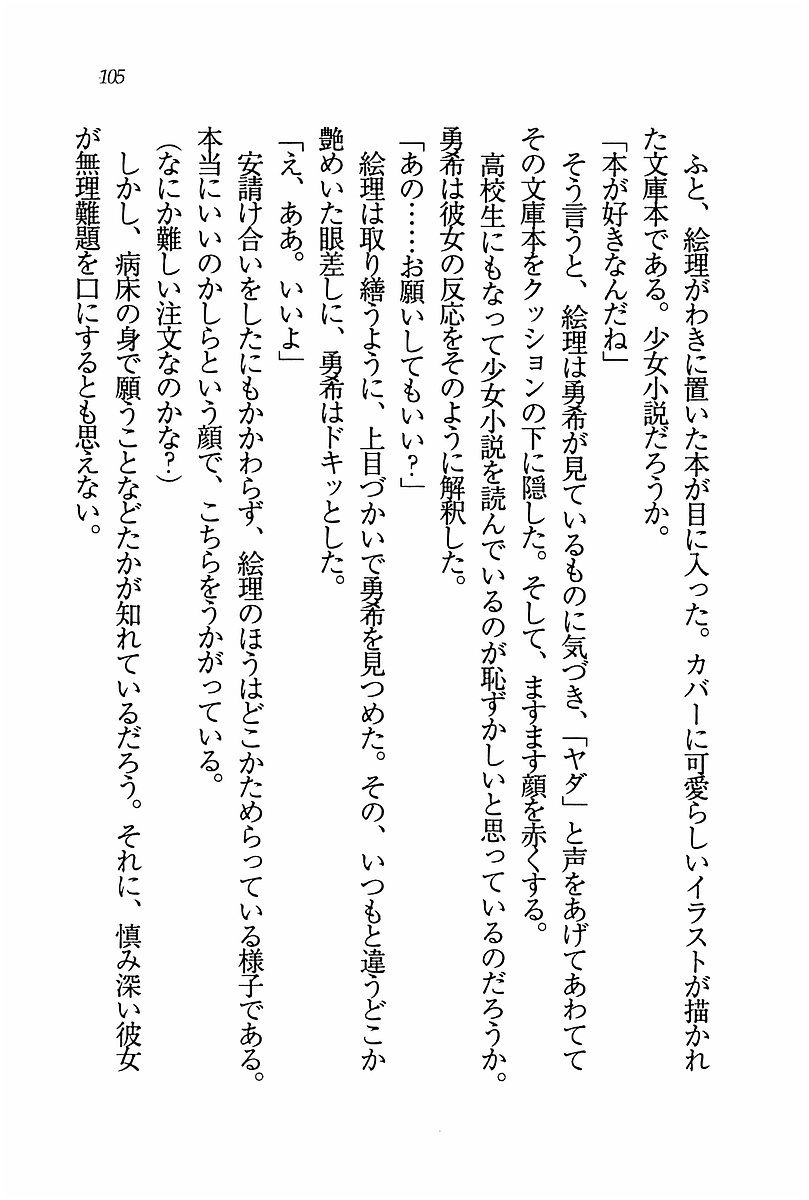 105
　ふと、絵理がわきに置いた本が目に入った。カバーに可愛らしいイラストが描かれ
た文庫本である。少女小説だろうか。
「本が好きなんだね」
　そう言うと、絵理は勇希が見ているものに気づき、「ヤダ」と声をあげてあわてて
その文庫本をクッションの下に隠した。そして、ますます顔を赤くする。
　高校生にもなって少女小説を読んでいるのが恥ずかしいと思っているのだろうか。
勇希は彼女の反応をそのように解釈した。
「あの……お願いしてもいい？」
　絵理は取り繕うように、上目づかいで勇希を見つめた。その、いつもと違うどこか
艶めいた眼差しに、勇希はドキッとした。
「え、ああ。いいよ」
　安請け合いをしたにもかかわらず、絵理のほうはどこかためらっている様子である。
本当にいいのかしらという顔で、こちらをうかがっている。
（なにか難しい注文なのかな？）
　しかし、病床の身で願うことなどたかが知れているだろう。それに、慎み深い彼女
が無理難題を口にするとも思えない。